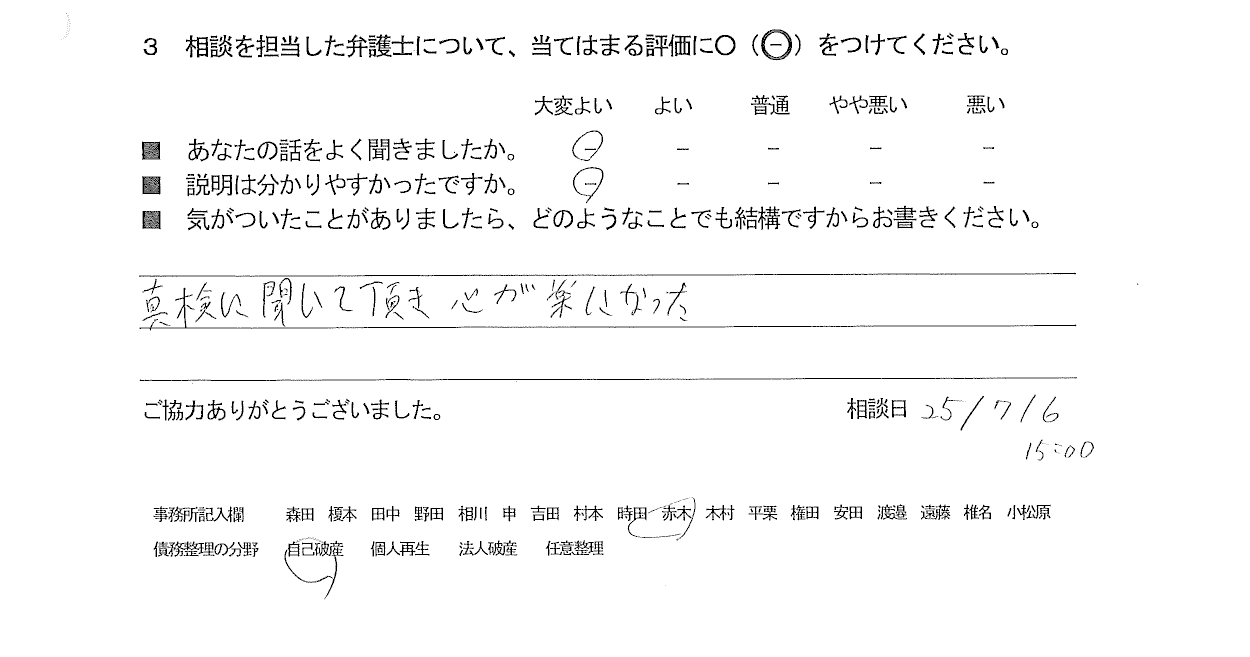 3 相談を担当した弁護士について、当てはまる評価に〇（㊀）をつけてください。
大変よい よい 普通 やや悪い 悪い
■ あなたの話をよく聞きましたか。 － － － － －
■ 説明は分かりやすかったですか。 － － － － －
■ 気がついたことがありましたら、どのようなことでも結構ですからお書きください。
真検に聞いて頂き 心が楽になった
ご協力ありがとうございました。 相談日 25/7/6
15:00
事務所記入欄 森田 榎本 田中 野田 相川 申 吉田 村本 時田 赤木 木村 平栗 権田 安田 渡邉 遠藤 椎名 小松原
債務整理の分野 自己破産 個人再生 法人破産 任意整理